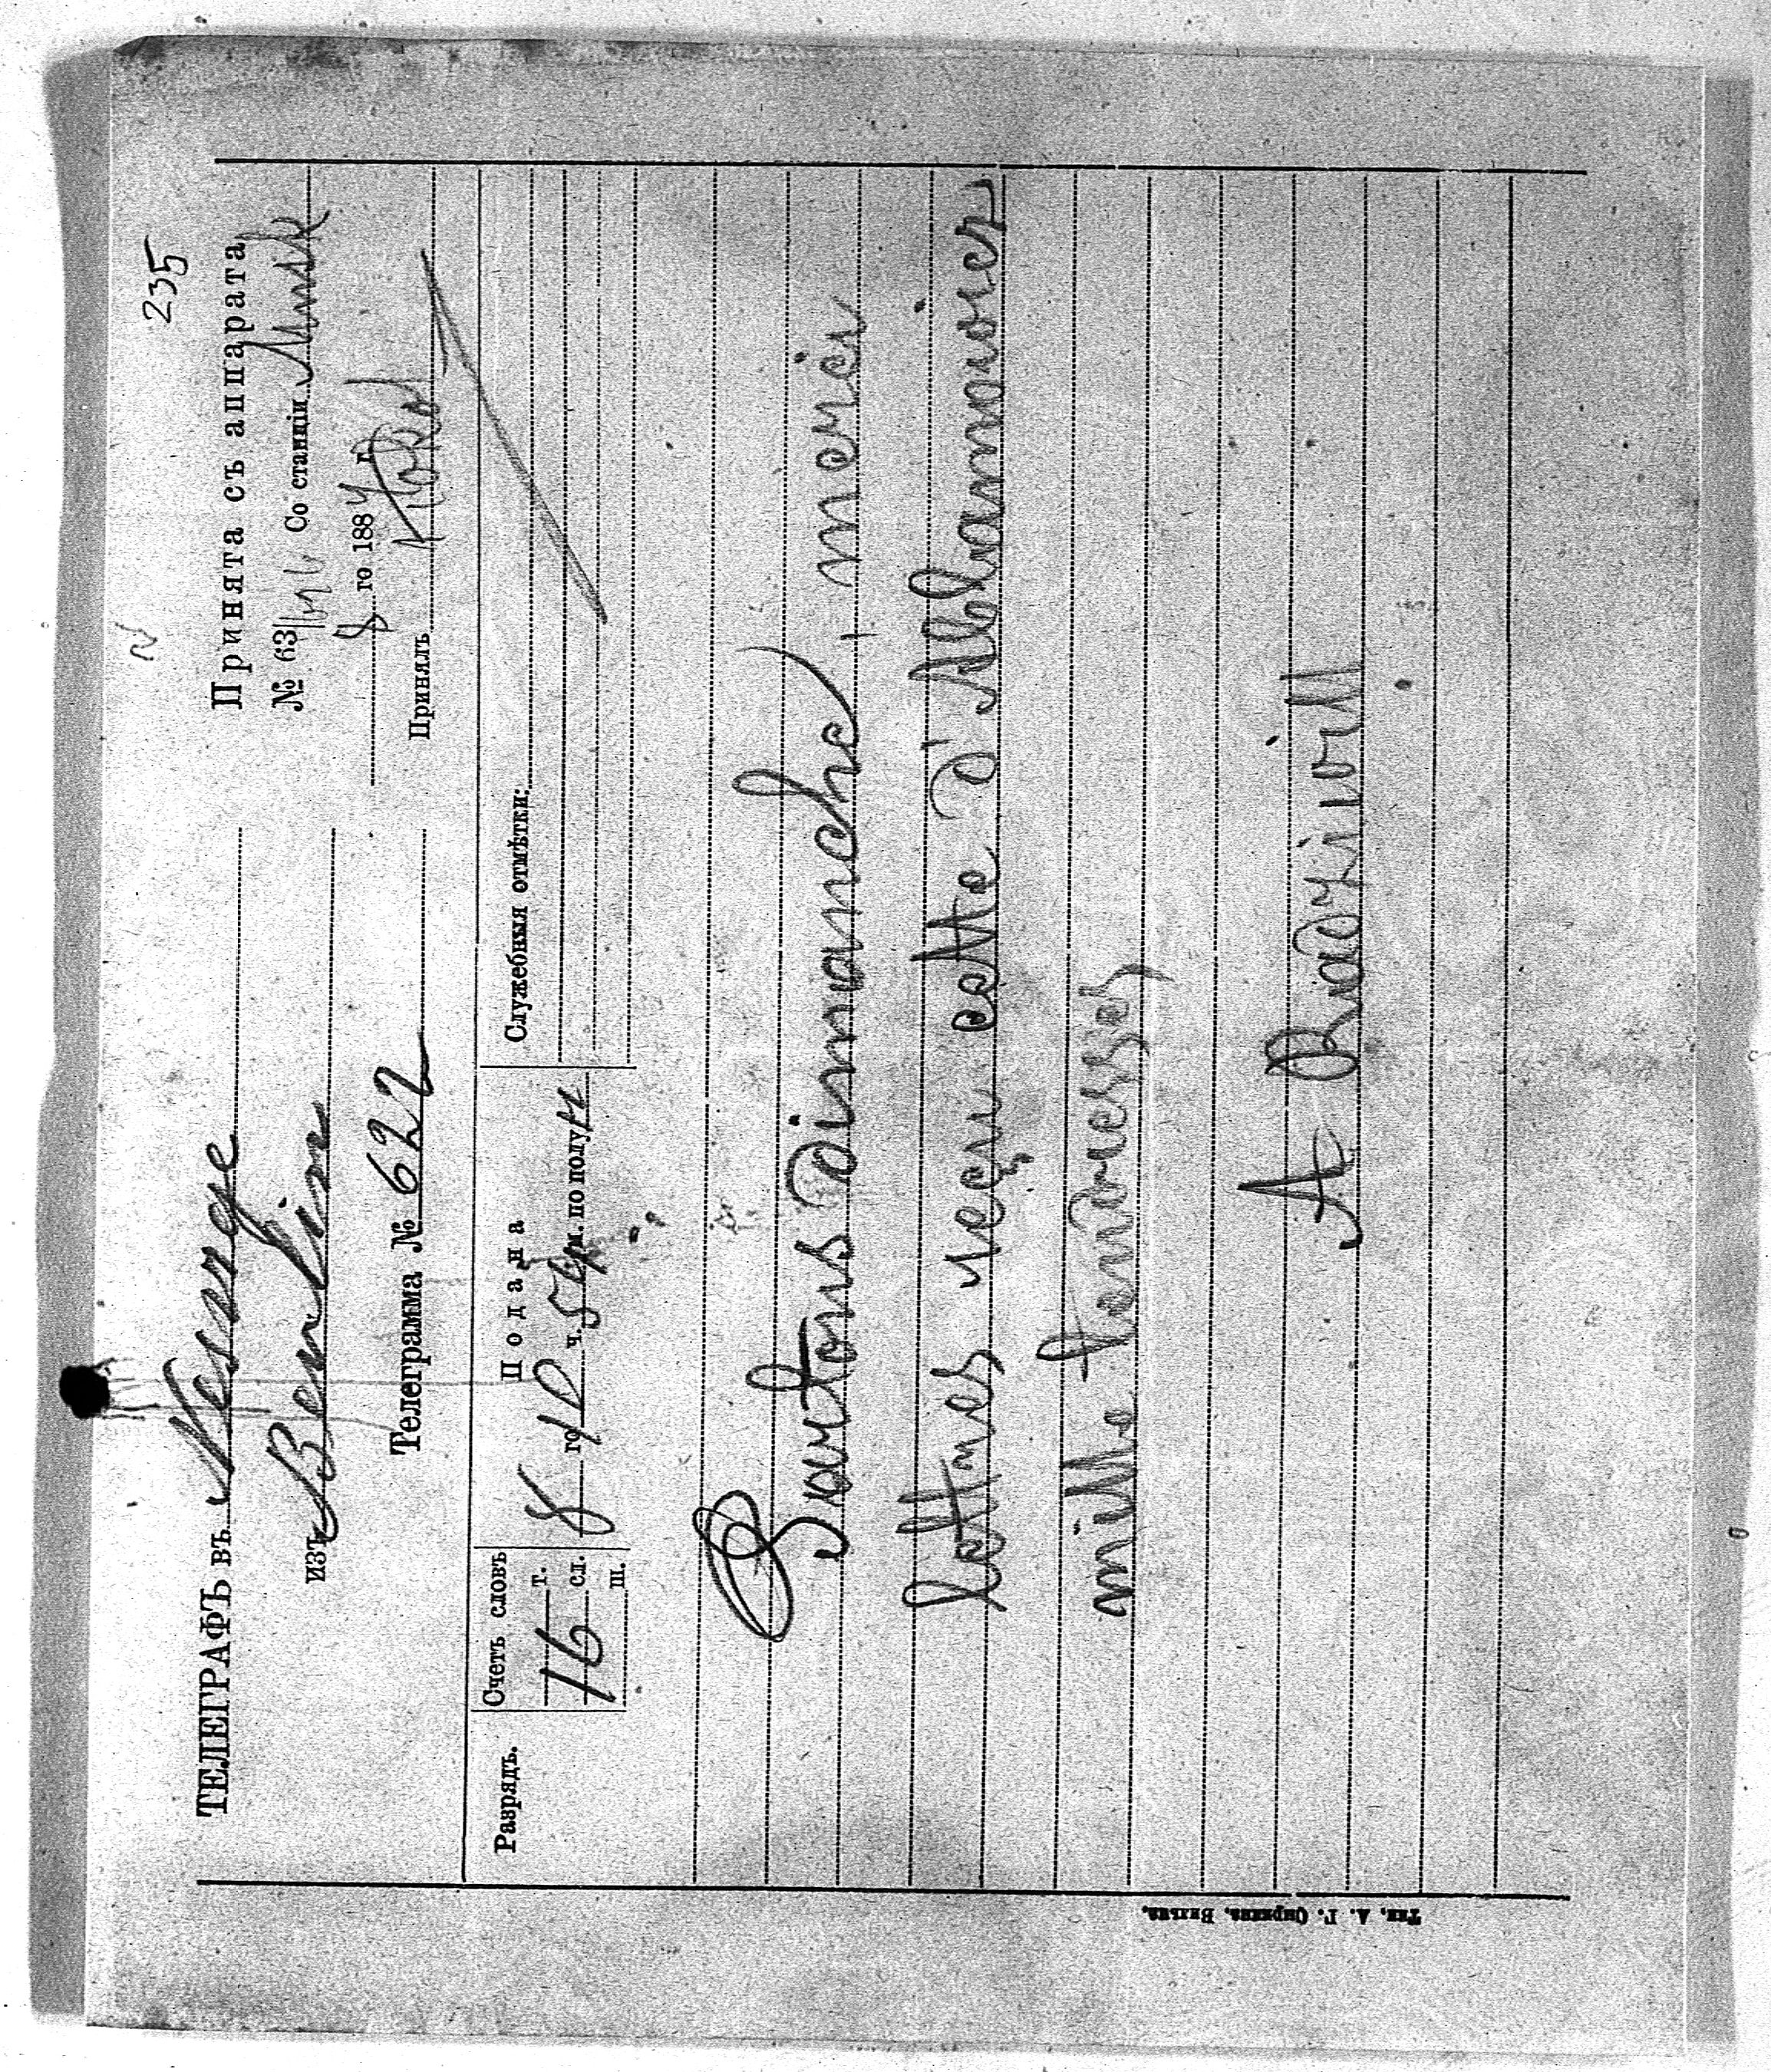 235
ТЕЛЕГРАФЪ въ Nesvige
изъ Berlin
Телеграмма № 622
Принята съ аппарата
№ 63 Со станціи Minsk
8 го 1884 г.
Принялъ
Разрядъ.
Счетъ словъ
г.
16 сл.
ш.
Подана
8 го 10 ч. 54 м. по полу
Служебныя отмѣтки:
Partons dimanche, merci
lettres reçu cette d'Albamovicz
mille tendresses
A Radziwill
Тип. А. Г. Сыркина, Вильна.